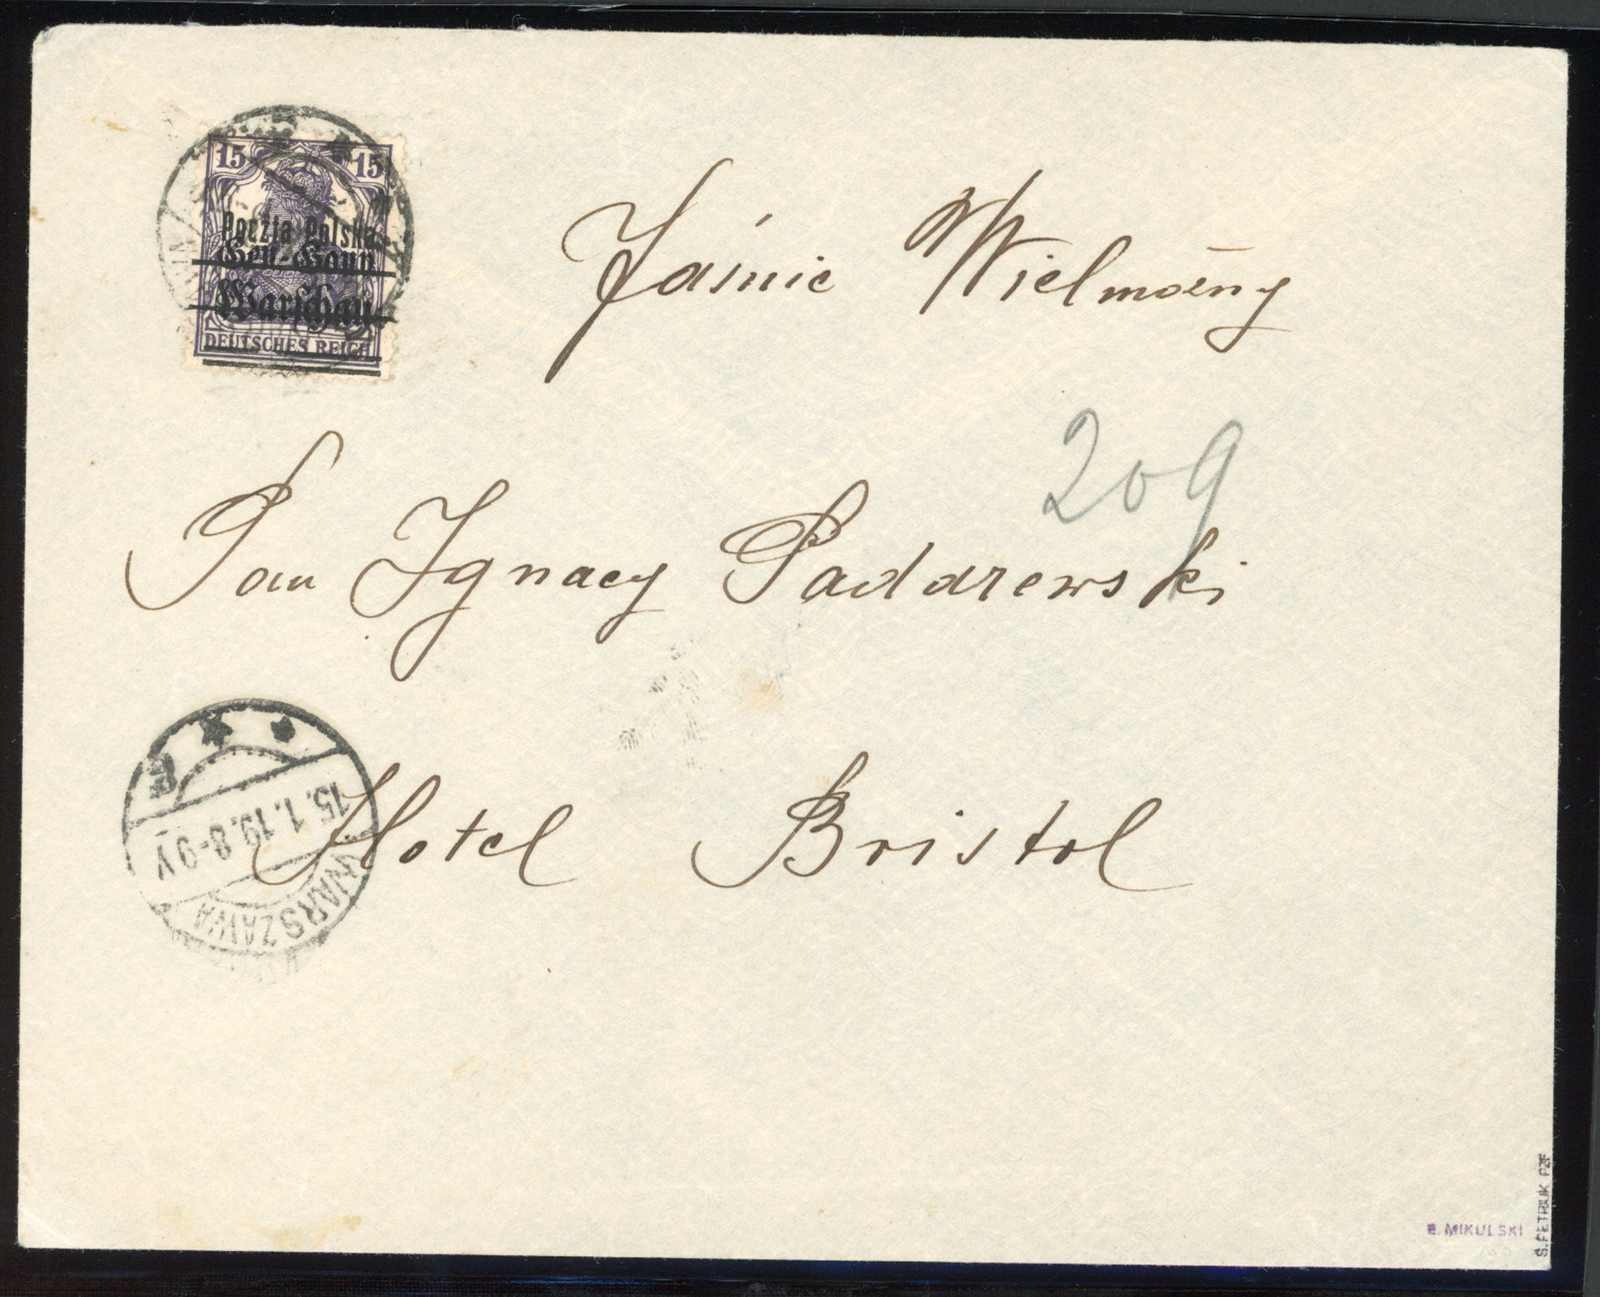 15 15
Poczta Polska
Gen.-Gouv.
Warschau
DEUTSCHES REICH
Jaśnie Wielmożny
209
Pan Ignacy Padarewski
15.1.19.8-9V
WARSZAWA
Hotel Bristol
E. MIKULSKI
S. PETRIUK PZF